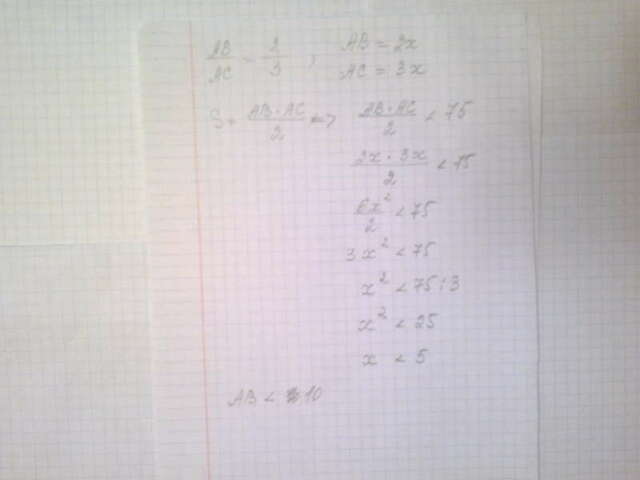 AB/AC = 2/3 , AB = 2x
AC = 3x
S = AB · AC/2 => AB · AC/2 < 75
2x · 3x/2 < 75
6x²/2 < 75
3x² < 75
x² < 75 : 3
x² < 25
x < 5
AB < 10